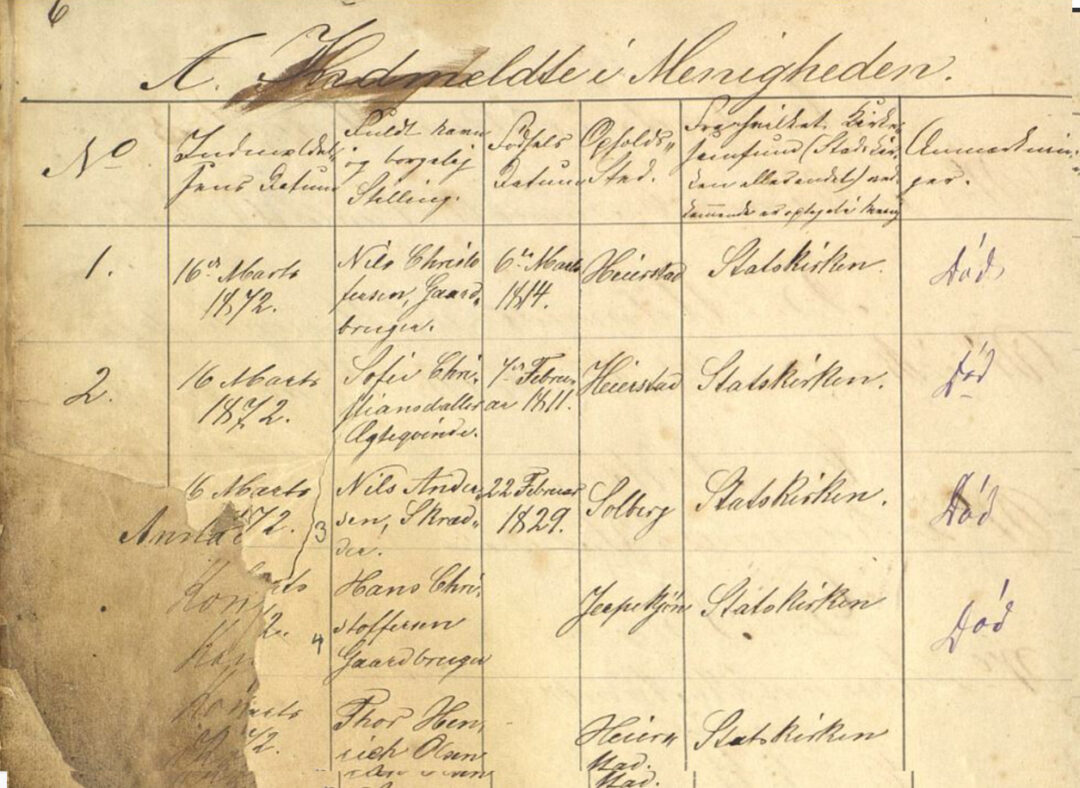 6
A. Indmeldte i Menigheden.
No
Indmeldel-
sens Datum
Fuldt Navn
og borgelig
Stilling.
Fødsels
Datum
Opholds-
Sted.
Fra hvilket Kirke-
samfund (Statskir-
ken eller andet) ved-
kommende
Anmærknin-
ger.
1.
16de Marts
1872.
Nils Christo
fersen, Gaard-
bruger.
6te Marts
1814.
Heierstad
Statskirken.
Død
2.
16 Marts
1872.
Sofie Chri-
stiansdatter
Ægteqvinde.
7de Febru-
ar 1811.
Heierstad
Statskirken.
Død
3
16 Marts
72.
Nils Ander-
sen, Skræd-
der.
22 Februar
1829.
Solberg
Statskirken.
Død
4
2.
Hans Chri-
stoffersen
Gaardbruger
Statskirken
Død
72.
Thor Hen-
rich Olsen
Heier-
stad.
Statskirken
stad.